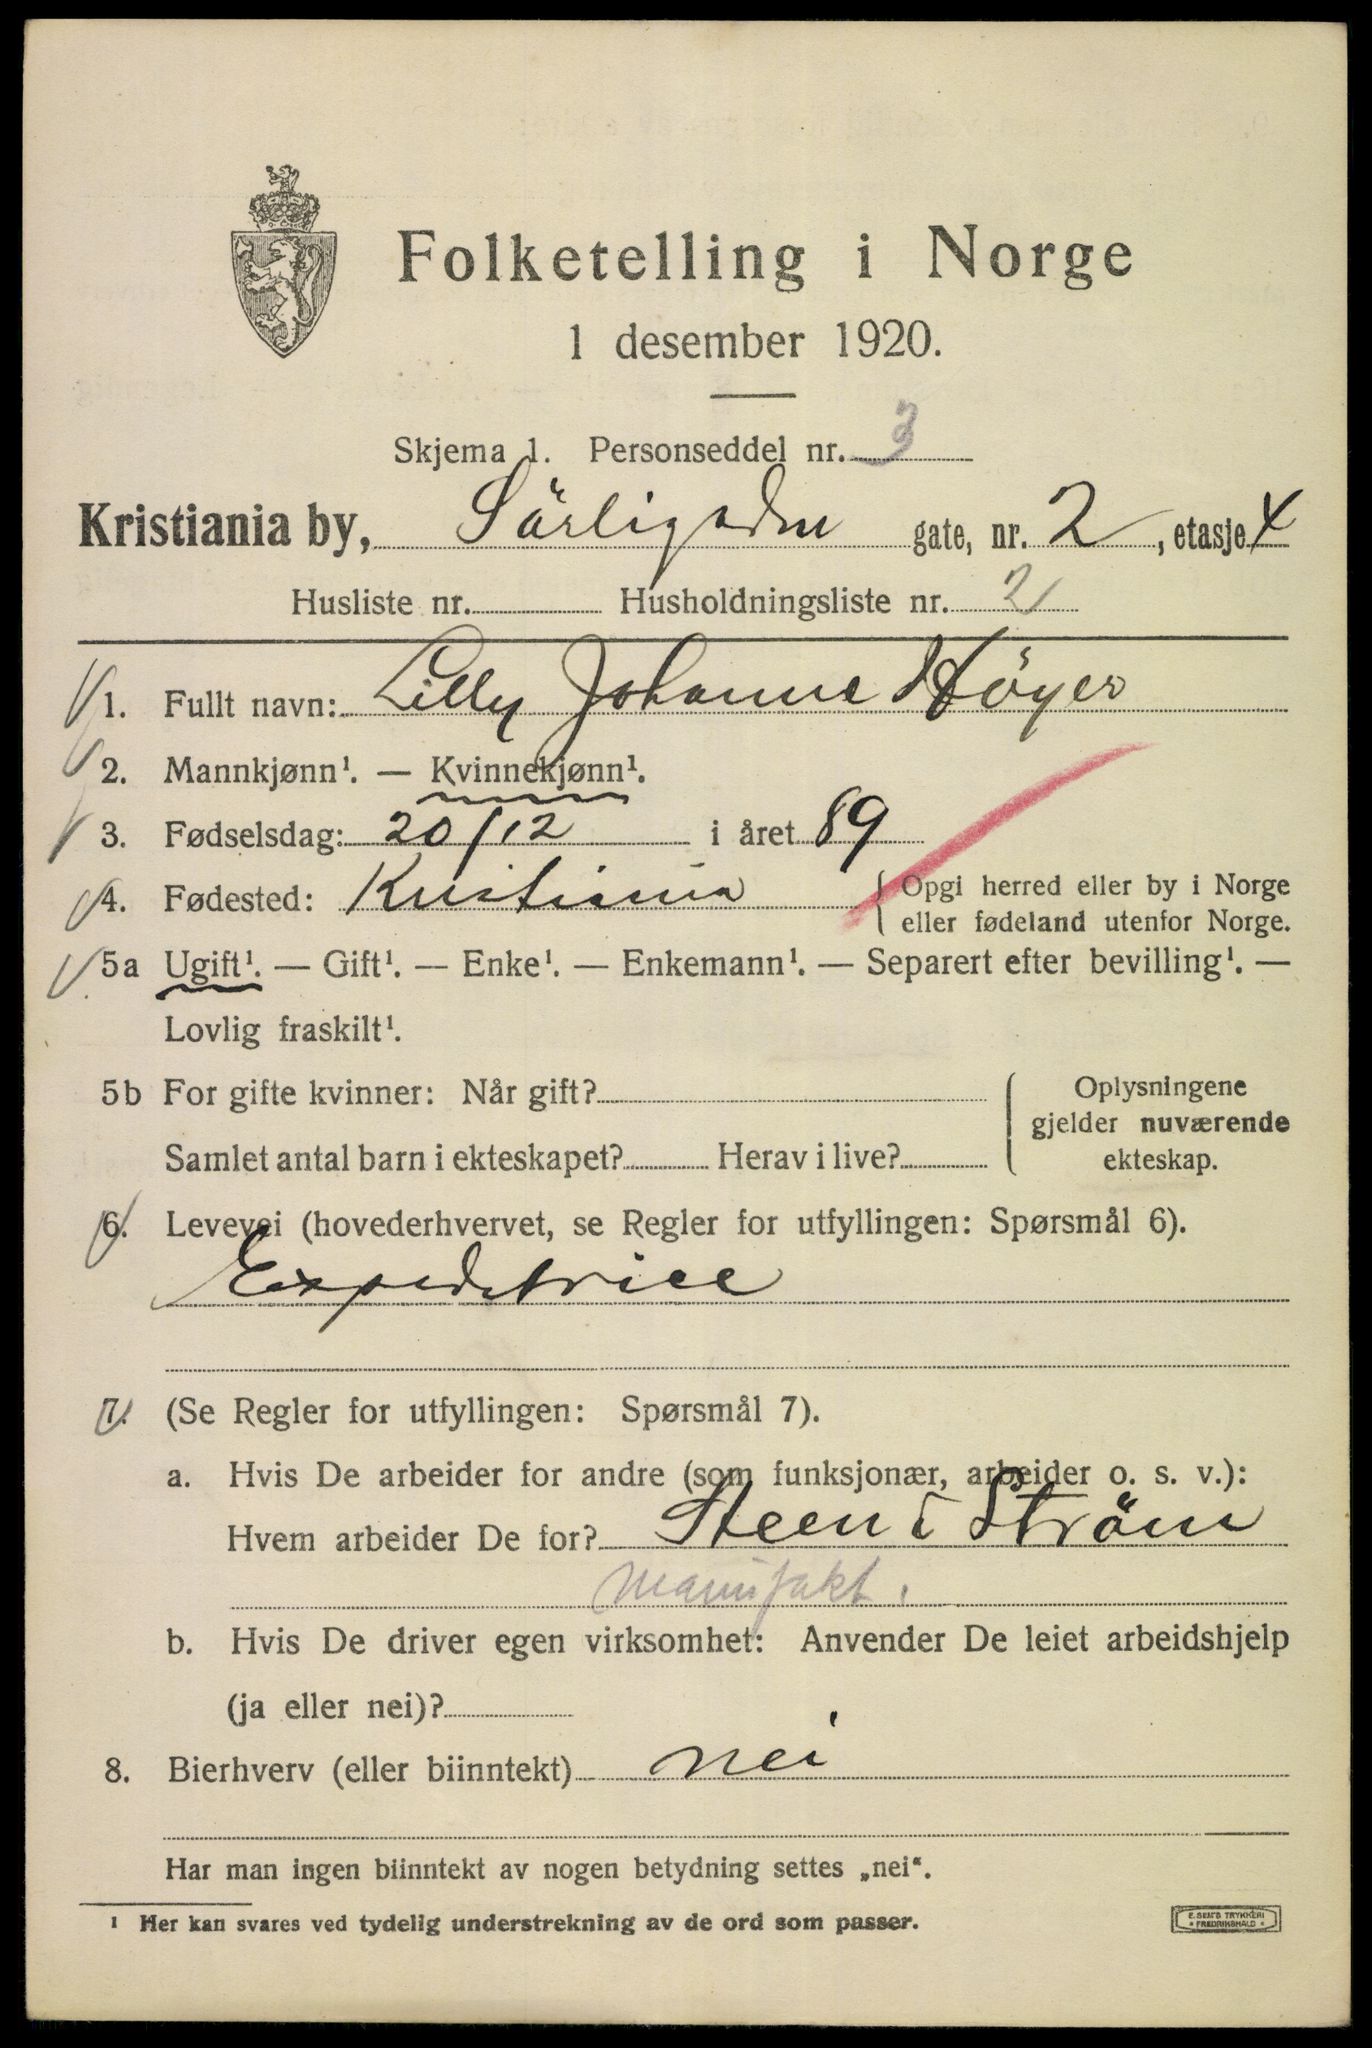 Folketelling i Norge
1 desember 1920.
Skjema 1. Personseddel nr. 3
Kristiania by, gate, nr. 2, etasje 4
Husliste nr. Husholdningsliste nr. 2
1. Fullt navn: Lilly Johanne Höyer
2. Mannkjønn¹. — Kvinnekjønn¹.
3. Fødselsdag: 20/12 i året 89
4. Fødested: Kristiania { Opgi herred eller by i Norge
eller fødeland utenfor Norge.
5a Ugift¹. — Gift¹. — Enke¹. — Enkemann¹. — Separert efter bevilling¹. —
Lovlig fraskilt¹.
5b For gifte kvinner: Når gift? { Oplysningene
gjelder nuværende
Samlet antal barn i ekteskapet? Herav i live? ekteskap.
6. Levevei (hovederhvervet, se Regler for utfyllingen: Spørsmål 6).
Expeditrice
7. (Se Regler for utfyllingen: Spørsmål 7).
a. Hvis De arbeider for andre (som funksjonær, arbeider o. s. v.):
Hvem arbeider De for? Steen & Ström
Manufakt.
b. Hvis De driver egen virksomhet: Anvender De leiet arbeidshjelp
(ja eller nei)?
8. Bierhverv (eller biinntekt) nei
Har man ingen biinntekt av nogen betydning settes „nei“.
¹ Her kan svares ved tydelig understrekning av de ord som passer.
E. SEM'S TRYKKERI
* FREDRIKSHALD *